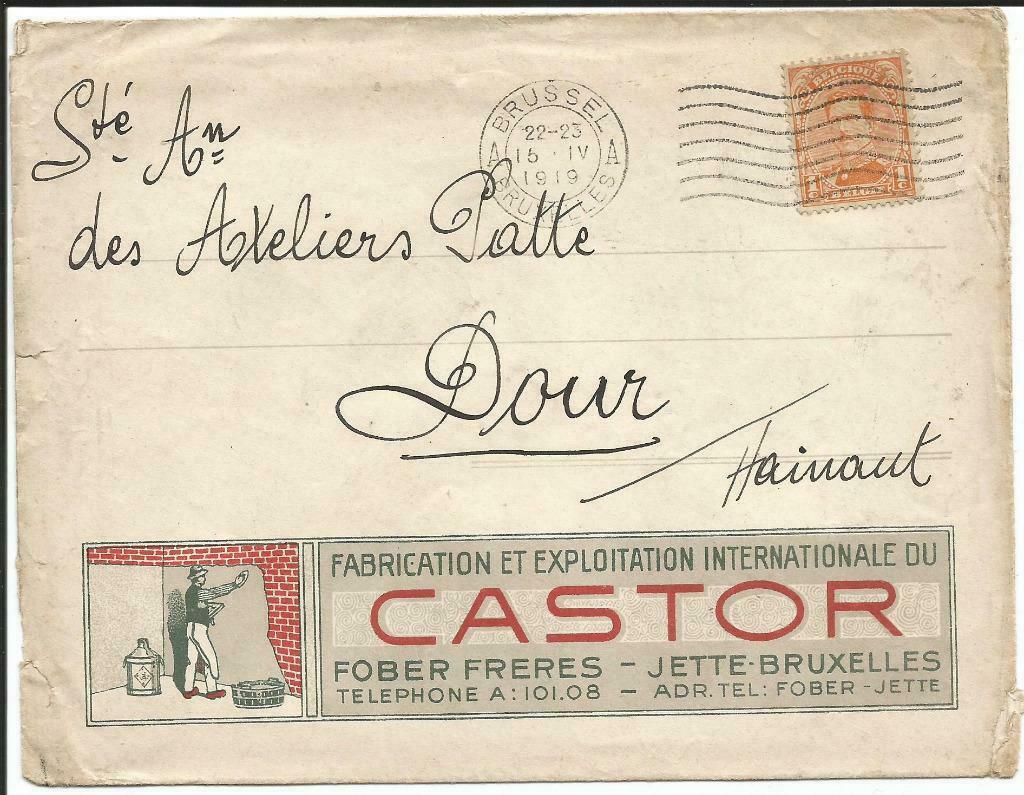 Sté An
des Ateliers Patte
Dour
Hainaut
BRUSSEL
22-23
A 15·IV A
1919
BRUXELLES
BELGIQUE
1c 1c
BELGIË
FABRICATION ET EXPLOITATION INTERNATIONALE DU
CASTOR
FOBER FRERES – JETTE-BRUXELLES
TELEPHONE A: 101.08 – ADR. TEL: FOBER-JETTE